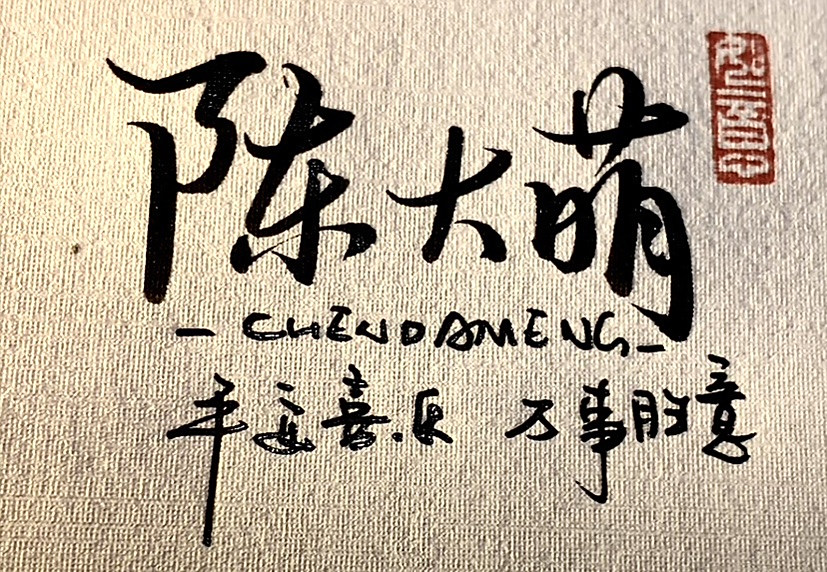 陈大萌
- CHENDAMENG -
平安喜乐 万事胜意